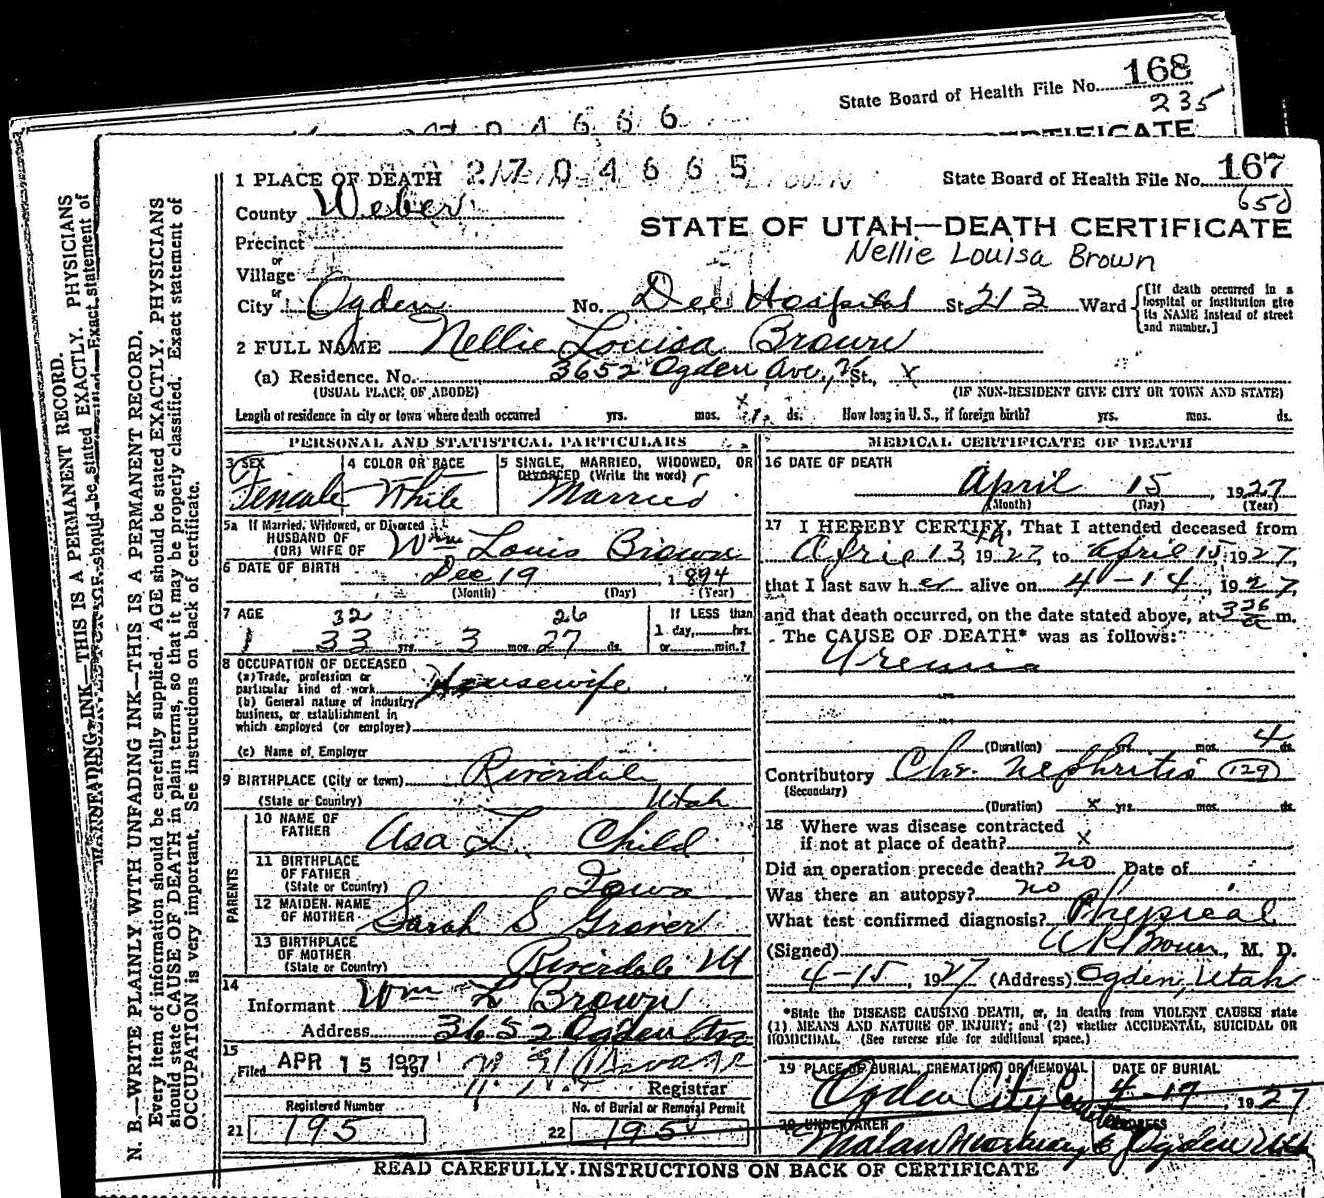 State Board of Health File No. 168
235
04666
CERTIFICATE
N. B.—WRITE PLAINLY WITH UNFADING INK—THIS IS A PERMANENT RECORD.
Every item of information should be carefully supplied. AGE should be stated EXACTLY. PHYSICIANS
should state CAUSE OF DEATH in plain terms, so that it may be properly classified. Exact statement of
OCCUPATION is very important. See instructions on back of certificate.
1 PLACE OF DEATH 2704665
State Board of Health File No. 167
650
County Weber
STATE OF UTAH—DEATH CERTIFICATE
Nellie Louisa Brown
Precinct
or
Village
or
City Ogden No. Dee Hospital St. 213 Ward
[If death occurred in a hospital or institution give its NAME instead of street and number.]
2 FULL NAME Nellie Louisa Brown
(a) Residence. No. 3652 Ogden Ave., St., x
(USUAL PLACE OF ABODE) (IF NON-RESIDENT GIVE CITY OR TOWN AND STATE)
Length of residence in city or town where death occurred yrs. mos. ds. How long in U. S., if foreign birth? yrs. mos. ds.
PERSONAL AND STATISTICAL PARTICULARS
3 SEX 4 COLOR OR RACE 5 SINGLE, MARRIED, WIDOWED, OR
DIVORCED (Write the word)
Female White Married
5a If Married, Widowed, or Divorced
HUSBAND OF
(OR) WIFE OF Wm Louis Brown
6 DATE OF BIRTH Dec 19, 1894
(Month) (Day) (Year)
7 AGE 32 26 If LESS than
33 yrs. 3 mos. 27 ds. 1 day, hrs.
or min.?
8 OCCUPATION OF DECEASED
(a) Trade, profession or
particular kind of work Housewife
(b) General nature of industry,
business, or establishment in
which employed (or employer)
(c) Name of Employer
9 BIRTHPLACE (City or town) Riverdale
(State or Country) Utah
PARENTS
10 NAME OF
FATHER Asa L. Child
11 BIRTHPLACE
OF FATHER
(State or Country) Iowa
12 MAIDEN NAME
OF MOTHER Sarah S Grover
13 BIRTHPLACE
OF MOTHER
(State or Country) Riverdale Ut
14
Informant Wm L Brown
Address 3652 Ogden Ave
15
Filed APR 15 1927
Registrar
Registered Number No. of Burial or Removal Permit
21 195 22 195
MEDICAL CERTIFICATE OF DEATH
16 DATE OF DEATH
April 15, 1927
(Month) (Day) (Year)
17 I HEREBY CERTIFY, That I attended deceased from
April 13th 1927, to April 15, 1927,
that I last saw her alive on 4-14, 1927,
and that death occurred, on the date stated above, at 326 a m.
The CAUSE OF DEATH* was as follows:
Uremia
(Duration) yrs. mos. 4 ds.
Contributory Chr. Nephritis 129
(Secondary)
(Duration) x yrs. mos. ds.
18 Where was disease contracted
if not at place of death? x
Did an operation precede death? no Date of
Was there an autopsy? no
What test confirmed diagnosis? Physical
(Signed) W R Brown, M. D.
4-15, 1927 (Address) Ogden, Utah
*State the DISEASE CAUSING DEATH, or, in deaths from VIOLENT CAUSES state
(1) MEANS AND NATURE OF INJURY; and (2) whether ACCIDENTAL, SUICIDAL OR
HOMICIDAL. (See reverse side for additional space.)
19 PLACE OF BURIAL, CREMATION, OR REMOVAL DATE OF BURIAL
Ogden City Cemetery 4-17, 1927
20 UNDERTAKER ADDRESS
Malan Mortuary Ogden Utah
READ CAREFULLY INSTRUCTIONS ON BACK OF CERTIFICATE